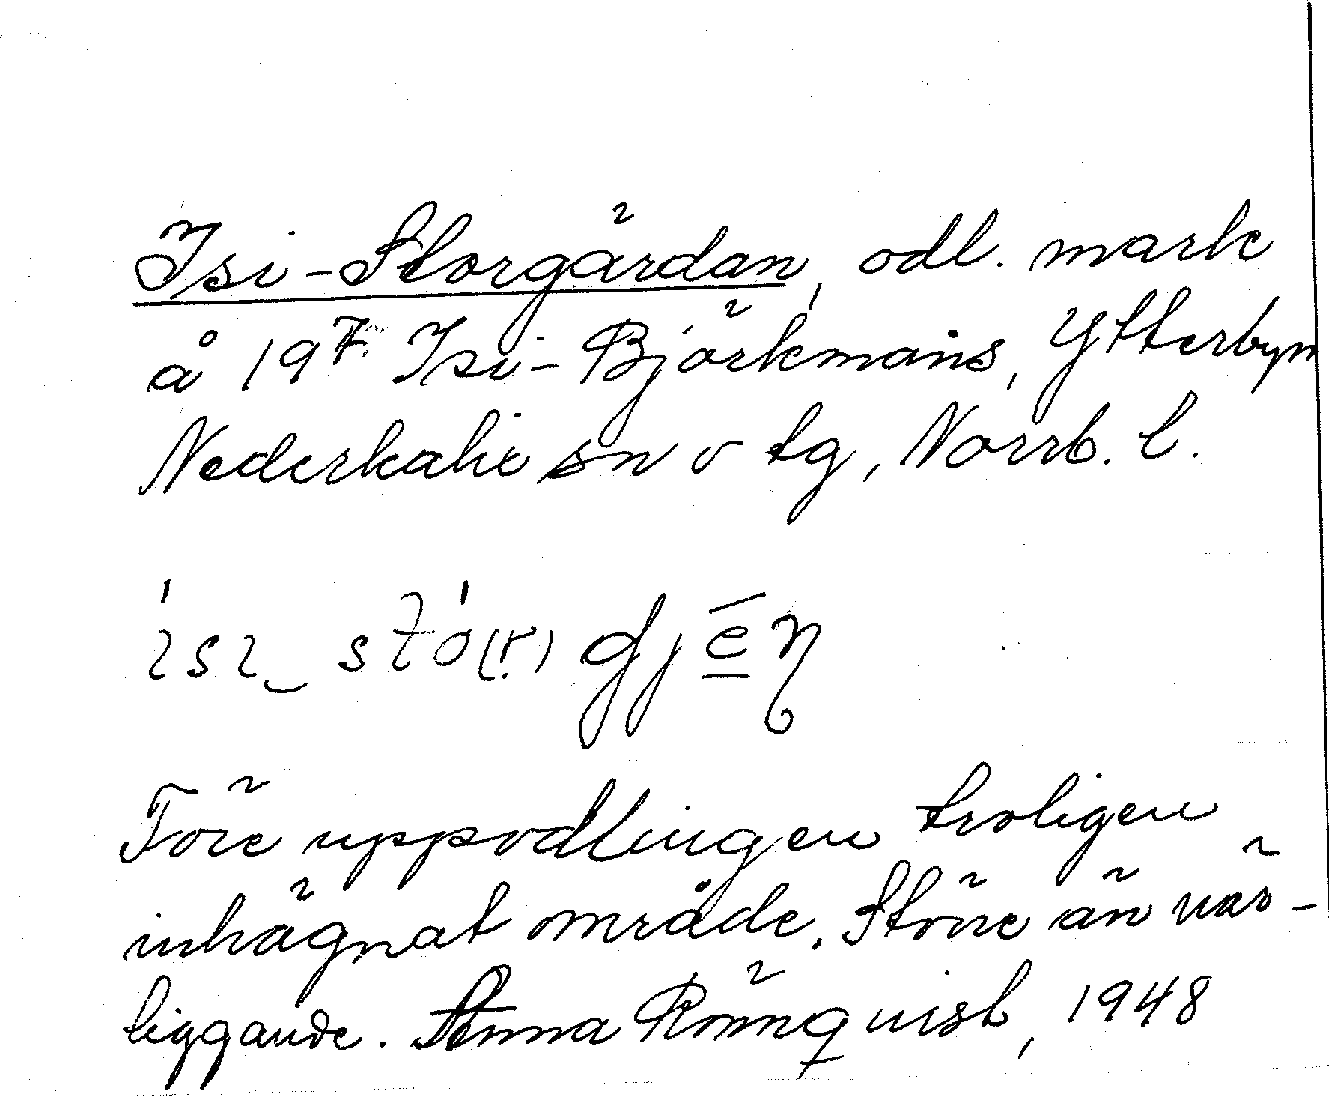 Isi-Storgärdan, odl. mark
å 19⁷. Isi-Björkmans, Ytterbyn
Nederkalix sn o tg, Norrb. l.
ísı_ stó(r) gjēn
Före uppodlingen troligen
inhägnat område. Större än när-
liggande. Anna Rönnquist, 1948